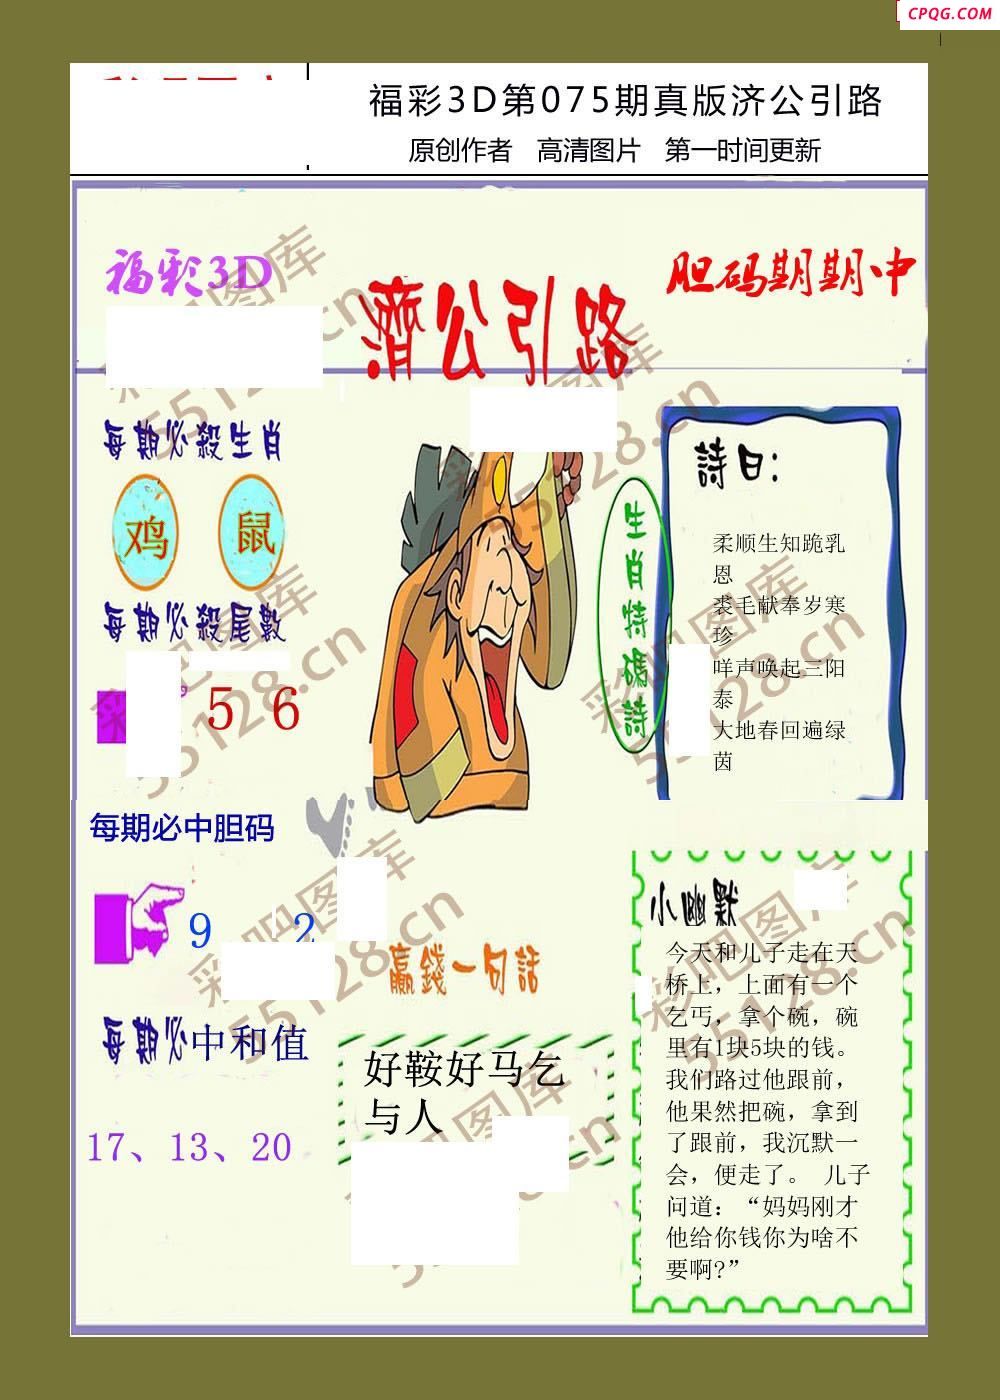 CPQG.COM
福彩3D第075期真版济公引路
原创作者 高清图片 第一时间更新
福彩3D
濟公引路
胆码期期中
每期必殺生肖
鸡 鼠
每期必殺尾數
5 6
每期必中胆码
9 2
每期必中和值
17、13、20
生肖特碼詩
詩曰：
柔顺生知跪乳
恩
裘毛献奉岁寒
珍
咩声唤起三阳
泰
大地春回遍绿
茵
赢錢一句話
好鞍好马乞
与人
小幽默
今天和儿子走在天
桥上，上面有一个
乞丐，拿个碗，碗
里有1块5块的钱。
我们路过他跟前，
他果然把碗，拿到
了跟前，我沉默一
会，便走了。 儿子
问道：“妈妈刚才
他给你钱你为啥不
要啊?”
彩吧图库
55128.cn
彩吧图库
55128.cn
彩吧图库
55128.cn
彩吧图库
55128.cn
彩吧图库
55128.cn